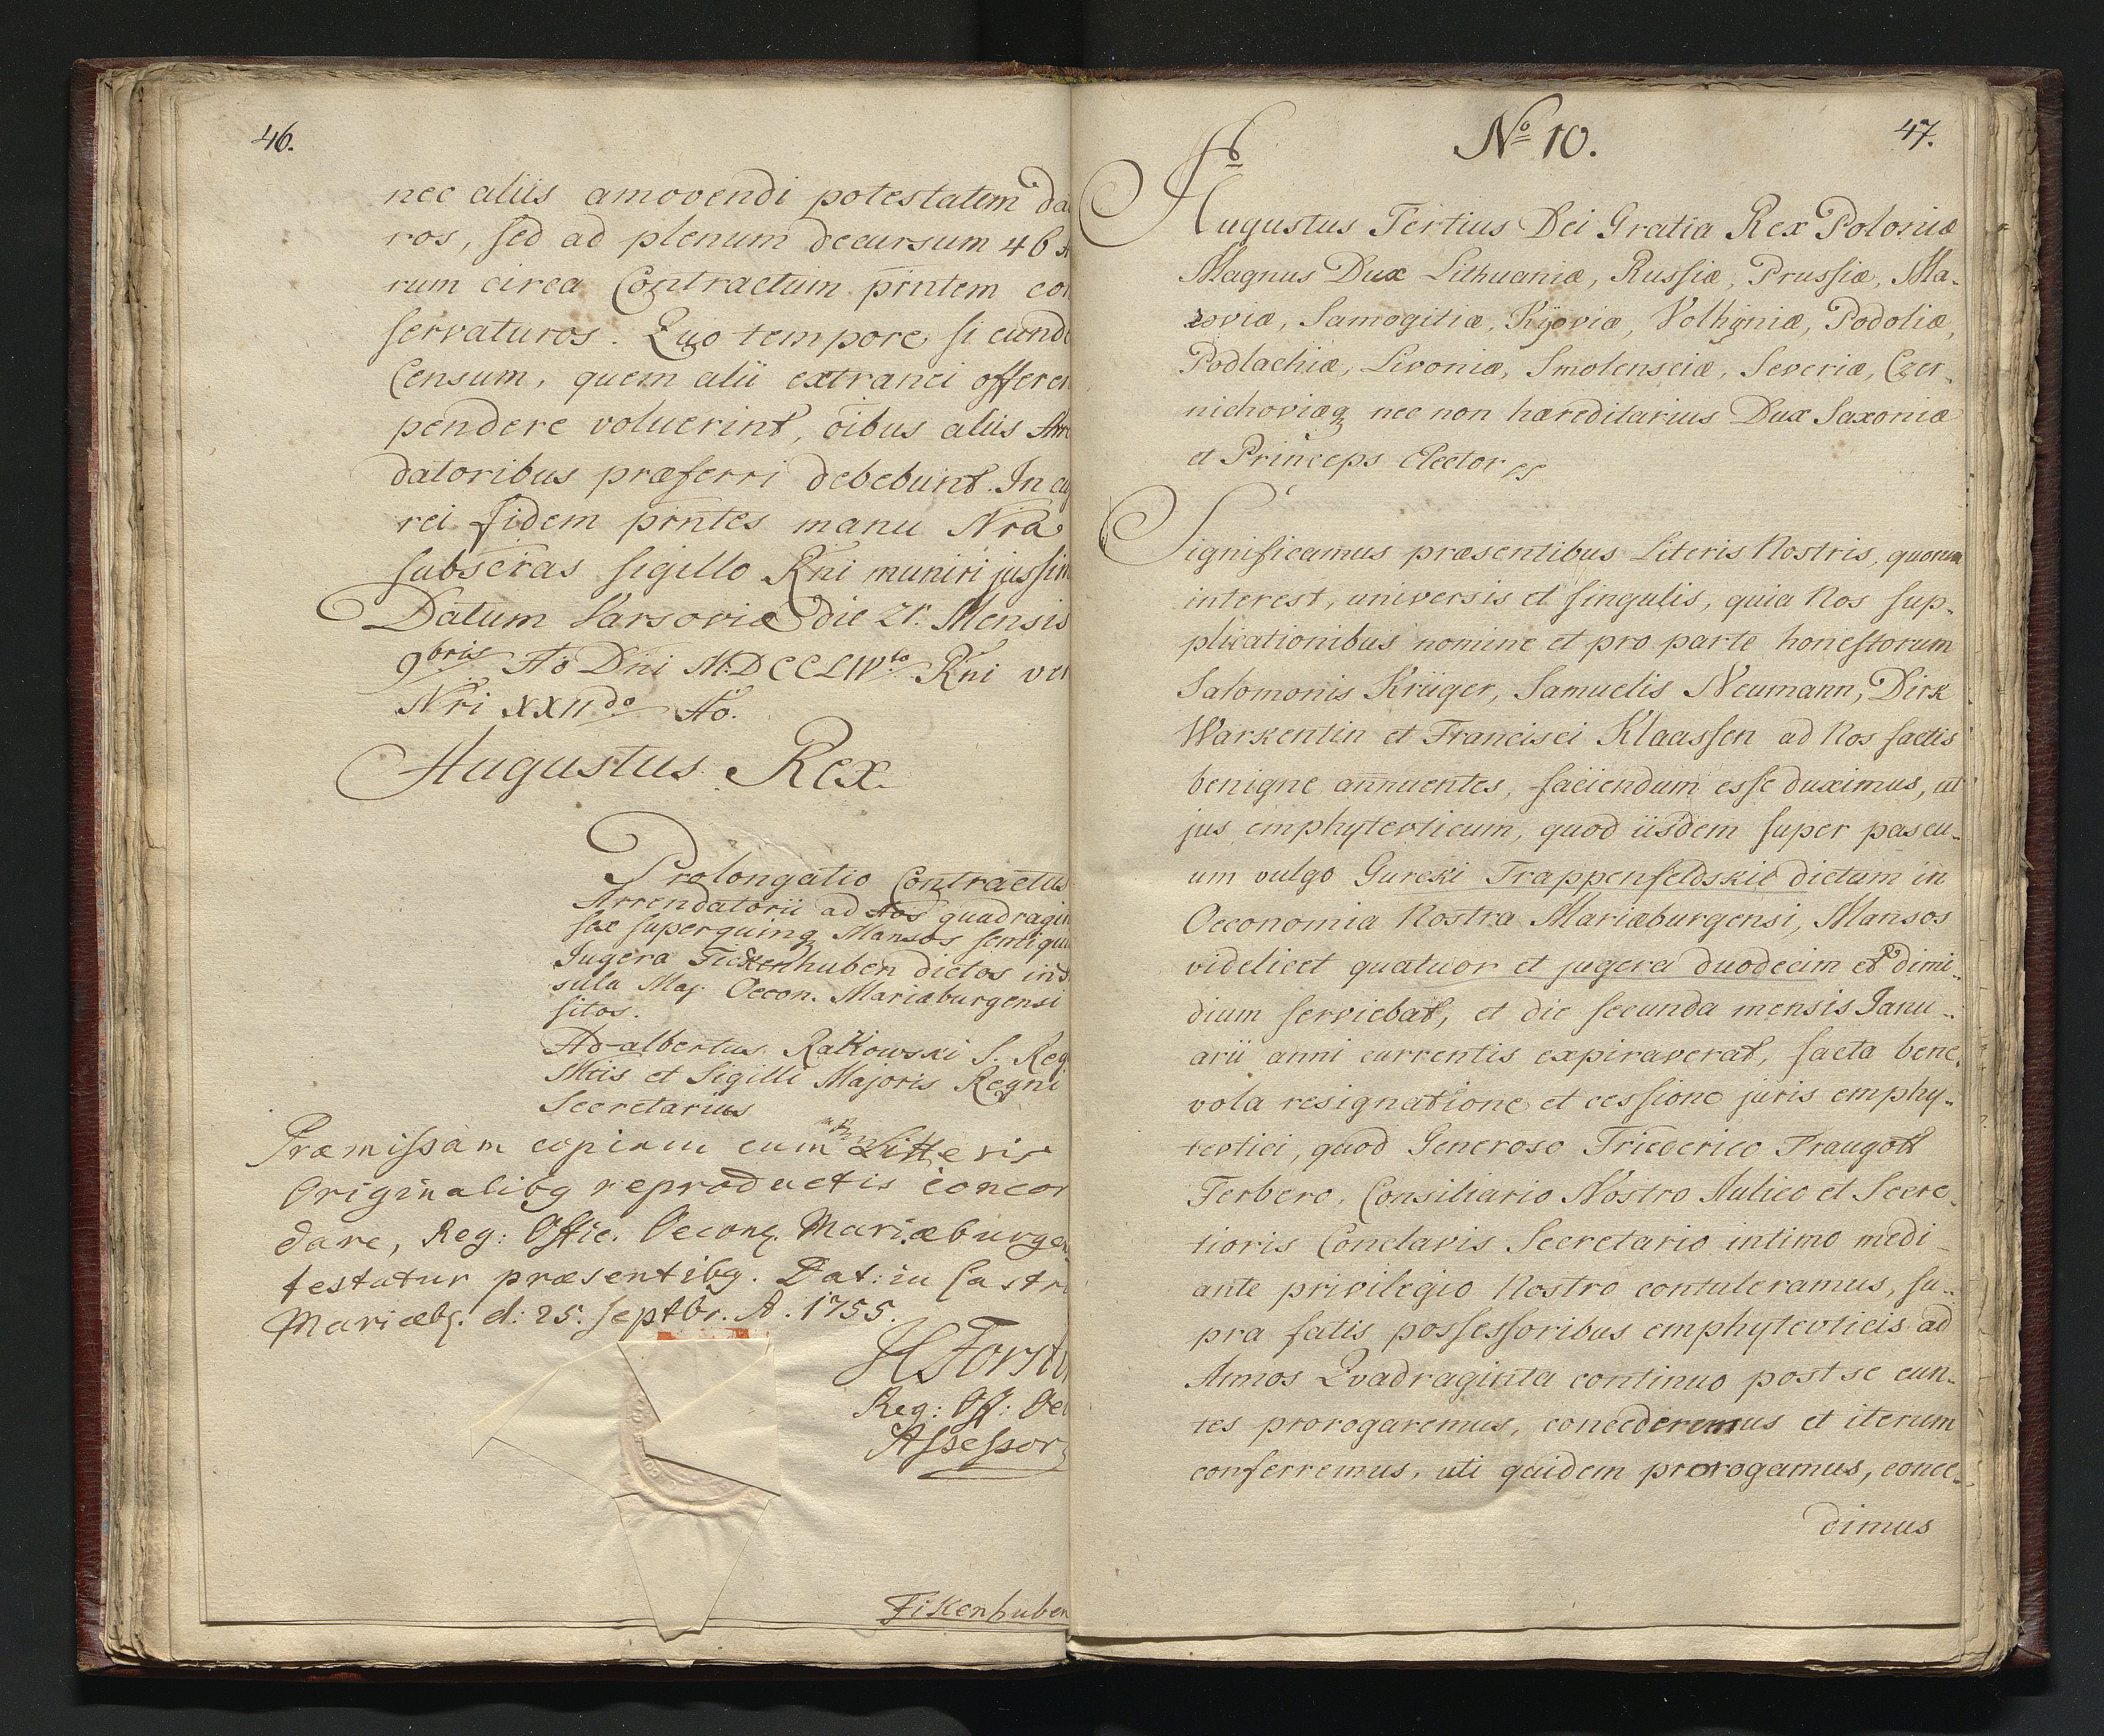 46.
nec aliis amovendi potestatem da
ros, sed ad plenum decursum 46 A
rum circa Contractum pñtem con
servaturos. Quo tempore si eund
Censum, quem alii extranei offeren
pendere voluerint, oibus aliis Arre
datoribus præferri debebunt. In cuj
rei fidem pñtes manu Nra
subscras sigillo Rñi muniri jussim
Datum Varsoviæ die 21. Mensis
9bris Ao Dñi MDCCLIVto Rñi ve
Nri XXIIdo Ao.
Augustus Rex.
Prolongatio Contractus
Arrendatorii ad Aos quadragin
sex super quinq Mansos semi qui
Jugera Fickenhuben dictos in
sula Maj. Oecon. Mariæburgensi
sitos.
Adalbertus Rakowski S. Reg
Mtis et Sigilli Majoris Regni
Secretarius
Præmissam copiam cum Litteris
Originalibq reproductis concor
dare, Reg: Offic. Oecon. Mariæburgen
testatur præsentibq. Dat: in Castr
Mariæb. d: 25. Septbr. A. 1755.
Forst
Reg: Off: Oe
Assessor
Fikenhuben
No 10.
47.
Augustus Tertius Dei Gratia Rex Poloniæ
Magnus Dux Lithuaniæ, Russiæ, Prussiæ, Ma-
zoviæ, Samogitiæ, Kijoviæ, Volhyniæ, Podoliæ,
Podlachiæ, Livoniæ, Smolensciæ, Severiæ, Czer-
nichoviæq nec non hæreditarius Dux Saxoniæ
et Princeps Elector
Significamus præsentibus Literis Nostris, quorum
interest, universis et singulis, quia Nos sup-
plicationibus nomine et pro parte honestorum
Salomonis Krüger, Samuelis Neumann, Dirk
Warkentin et Francisci Klaassen ad Nos factis
benigne annuentes, faciendum esse duximus, ut
jus emphytevticum, quod iisdem super pascu-
um vulgo Gurcki Trappenfeldskie dictum in
Oeconomia Nostra Mariæburgensi, Mansos
videlicet quatuor et jugera duodecim et dimi-
dium serviebat, et die secunda mensis Janu-
arii anni currentis expiraverat, facta bene-
vola resignatione et cessione juris emphy-
tevtici, quod Generoso Friederico Traugott
Ferbero, Consiliario Nostro Aulico et Secre-
tioris Conclavis Secretario intimo medi-
ante privilegio Nostro contuleramus, su-
pra fatis possessoribus emphytevticis ad
Annos Quadraginta continuo post se eun-
tes prorogaremus, concederemus et iterum
conferremus, uti quidem prorogamus, conce-
dimus